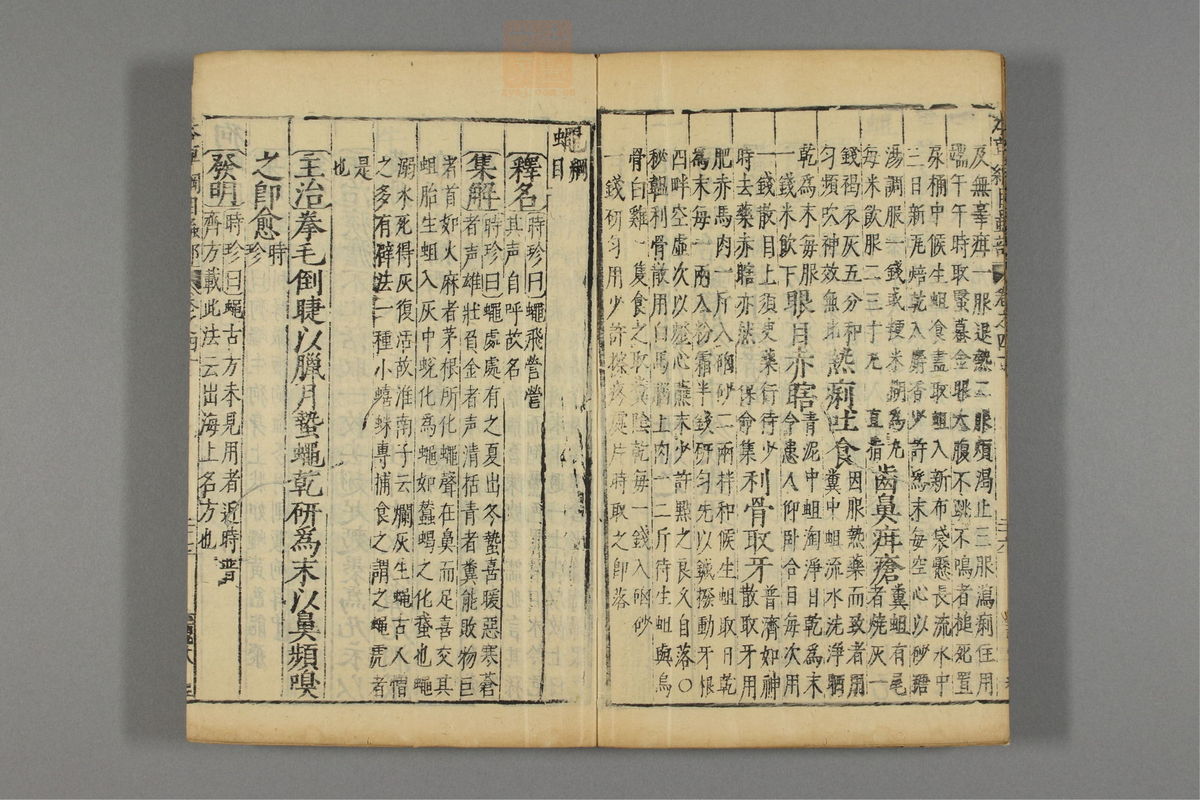 及無辜疳一服退熱二服煩渴止三服瀉痢住用
端午午時取蟾蜍金眼大腹不跳不鳴者槌死置
尿桶中候生蛆食盡取蛆入新布袋懸長流水中
三日新瓦焙乾入麝香少許為末每空心以砂糖
湯調服一錢或粳米糊為丸
每米飲服二三十丸直指齒鼻疳瘡糞蛆有尾者燒灰一
錢褐衣灰五分和
勻頻吹神效無比熱痢吐食因服熱藥而致者用糞中蛆流水洗淨晒
乾為末每服
一錢米飲下眼目赤瞎青泥中蛆淘淨日乾為末令患人仰卧合目每次用
一錢散目上須臾藥行待少
時去藥赤瞎亦無保命集利骨取牙普濟如神散取牙用
肥赤馬肉一斤入硇砂二兩拌和候生蛆日乾
為末每一兩入粉霜半錢研勻先以鍼撥動牙根
四畔空虛次以燈心蘸末少許點之良久自落○
秘韞利骨散用白馬腦上肉一二斤待生蛆與烏
骨白雞一隻食之取糞陰乾每一錢入硇砂
一錢研勻用少許擦疼處片時取之即落
蠅綱目
釋名時珍曰蠅飛營營其聲自呼故名
集解時珍曰蠅處處有之夏出冬蟄喜暖惡寒蒼
者聲雄壯負金者聲清括青者糞能敗物巨
者首如火麻者茅根所化蠅聲在鼻而足喜交其
蛆胎生蛆入灰中蛻化為蠅如蠶蝎之化蛾也蠅
溺水死得灰復活故淮南子云爛灰生蠅古人憎
之多有辟法一種小蟢蛛專捕食之謂之蠅虎者
是也
主治拳毛倒睫以臘月蟄蠅乾研為末以鼻頻嗅
之即愈時珍
發明時珍曰蠅古方未見用者近時普
齊方載此法云出海上名方也